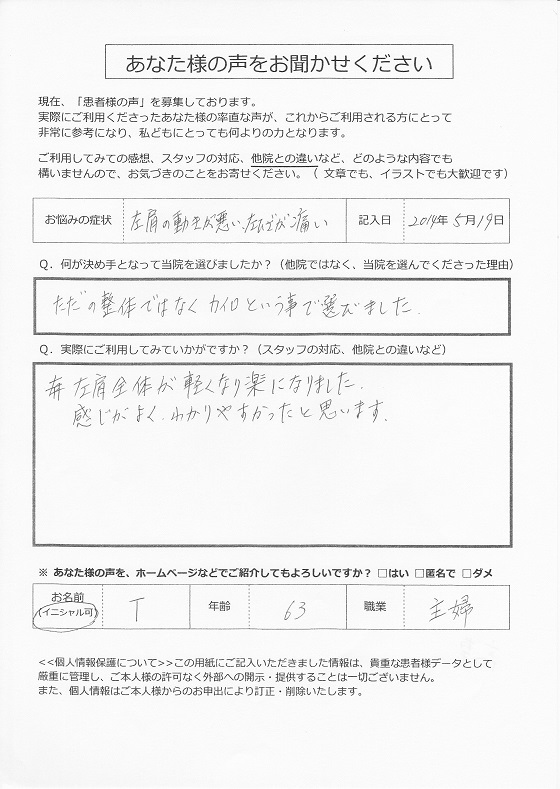 あなた様の声をお聞かせください
現在、「患者様の声」を募集しております。
実際にご利用くださったあなた様の率直な声が、これからご利用される方にとって
非常に参考になり、私どもにとっても何よりの力となります。
ご利用してみての感想、スタッフの対応、他院との違いなど、どのような内容でも
構いませんので、お気づきのことをお寄せください。（ 文章でも、イラストでも大歓迎です）
お悩みの症状 左肩の動きが悪い、左ひざが痛い 記入日 2014年 5月19日
Q．何が決め手となって当院を選びましたか？（他院ではなく、当院を選んでくださった理由）
ただの整体ではなく カイロという事で選びました.
Q．実際にご利用してみていかがですか？（スタッフの対応、他院との違いなど）
左肩全体が軽くなり楽になりました.
感じがよく、わかりやすかったと思います.
※ あなた様の声を、ホームページなどでご紹介してもよろしいですか？ □はい □匿名で □ダメ
お名前
（イニシャル可） T 年齢 63 職業 主婦
<<個人情報保護について>>この用紙にご記入いただきました情報は、貴重な患者様データとして
厳重に管理し、ご本人様の許可なく外部への開示・提供することは一切ございません。
また、個人情報はご本人様からのお申出により訂正・削除いたします。